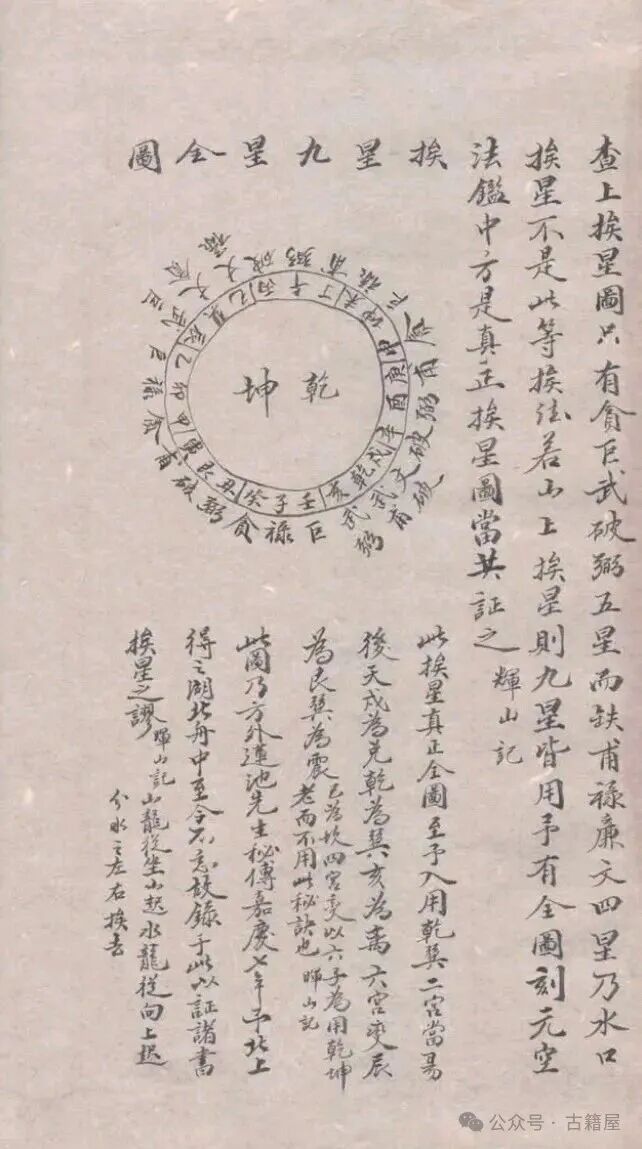 查上挨星圖只有貪巨武破弼五星而缺甫祿廉文四星乃水口
挨星不是此等挨法若山上挨星則九星皆用予有全圖刻元空
法鑑中方是真正挨星圖當共証之 輝山記
挨星九星全圖
乾坤
壬子癸丑艮寅甲卯乙辰巽巳丙午丁未坤申庚酉辛戌乾亥
此挨星真正全圖至予入用乾巽二宮當易
後天戌為兌乾為巽亥為离六宮变辰
為艮巽為震巳為坎四宮变以六子為用乾坤
老而不用此秘訣也 暉山記
此圖乃方外蓮池先生秘傳嘉慶七年予北上
得之湖北舟中至今不忘故録于此以証諸書
挨星之謬 暉山記 山龍從坐山起水龍從向上起
分水之左右挨去
公众号·古籍屋